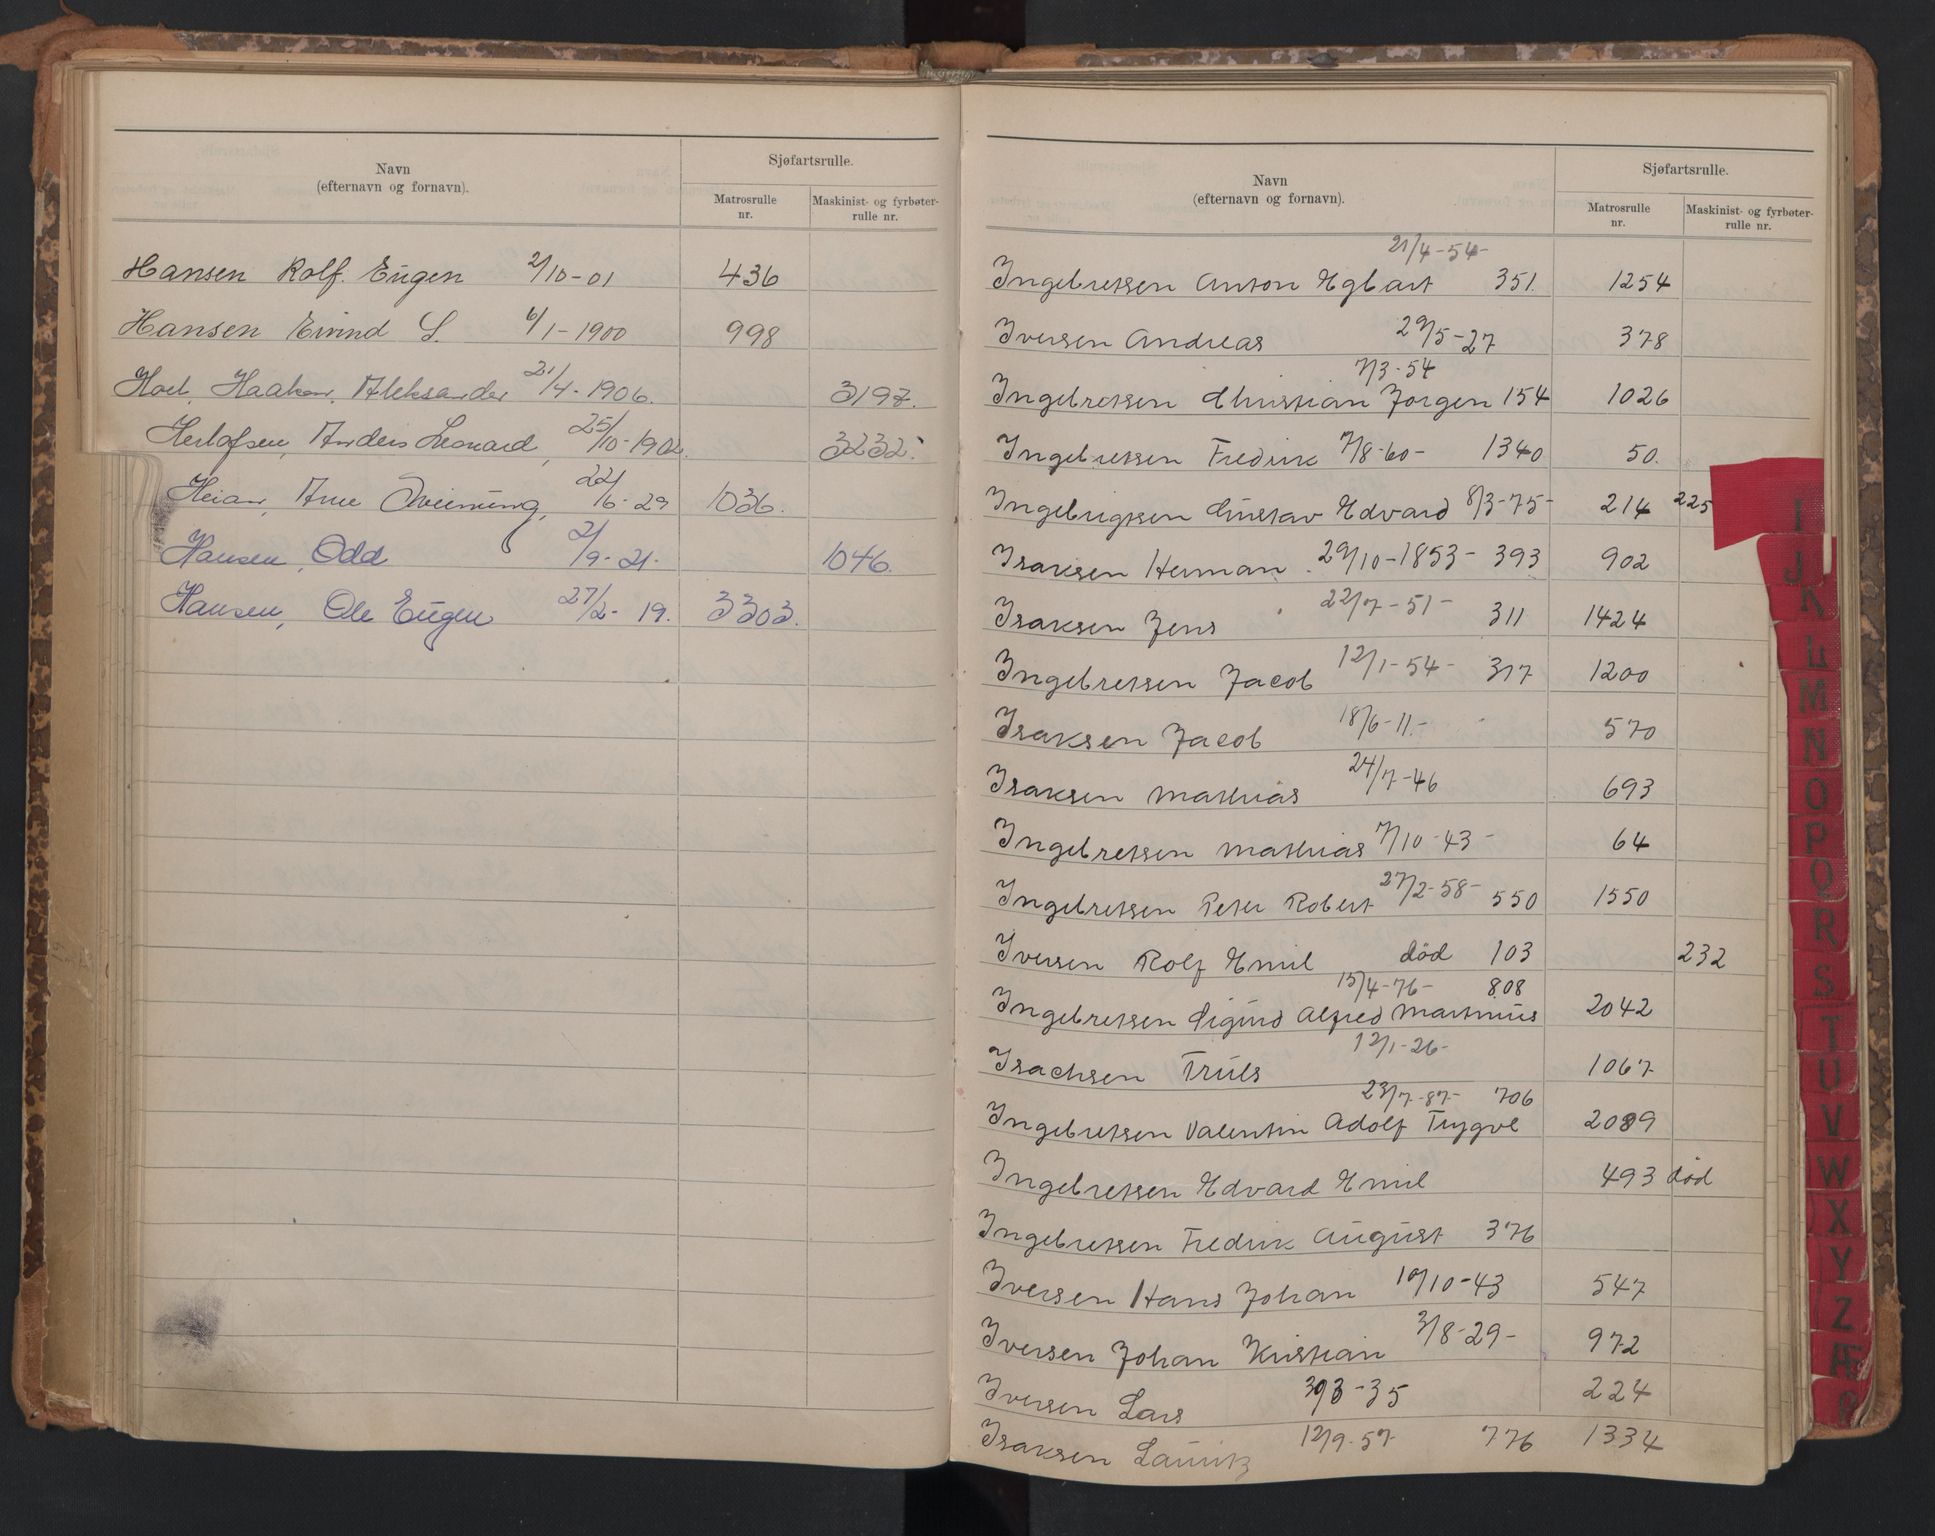 Navn
(efternavn og fornavn).
Sjøfartsrulle.
Matrosrulle nr.
Maskinist- og fyrbøter-rulle nr.
Hansen Rolf. Eugen 2/10-01 436
Hansen Eivind S. 6/1-1900 998
Hoel, Haakon, Aleksander 21/4-1906. 3197.
Herlofsen, Anders Leonard, 25/10-1902. 3232.
Heian, Arne 22/6-29 1036.
Hansen, Odd 2/9-21. 1046.
Hansen, Ole Eugen 27/2-19. 3303.
Navn
(efternavn og fornavn).
Sjøfartsrulle.
Matrosrulle nr.
Maskinist- og fyrbøter-rulle nr.
21/4-54-
Ingebretsen Anton Egbart 351. 1254
Iversen Andreas 29/5-27 378
7/3-54
Ingebretsen Christian Jørgen 154 1026
Ingebretsen Fredrik 7/8-60- 1340 50.
Ingebrigtsen Gustav Edvard 8/3-75- 214 225
Isaksen Herman. 29/10-1853- 393 902
Isaksen Jens 22/7-51- 311 1424
Ingebretsen Jacob 12/1-54- 317 1200
Isaksen Jacob 18/6-11.- 570
Isaksen Mathias 24/7-46 693
Ingebretsen Mathias 7/10-43- 64
Ingebretsen Peter Robert 27/2-58- 550 1550
Iversen Rolf Emil død 103 232
15/4-76- 808
Ingebretsen Sigurd Alfred Martinius 2042
Isachsen Truls 12/1-26- 1067
23/7-87- 706
Ingebretsen Valentin Adolf Trygve 2089
Ingebretsen Edvard Emil 493 død
Ingebretsen Fredrik August 376
Iversen Hans Johan 10/10-43 547
Iversen Johan Kristian 3/8-29- 972
Iversen Lars 30/3-35 224
Isaksen Lauritz 12/9-57- 776 1334
I
J
K
L
M
N
O
P
Q
R
S
T
U
V
W
X
Y
Z
Æ
Ø